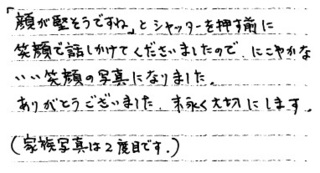 「顔が堅そうですね」とシャッターを押す前に
笑顔で話しかけてくださいましたので、にこやかな
いい笑顔の写真になりました。
ありがとうございました。末永く大切にします。
(家族写真は2度目です。)